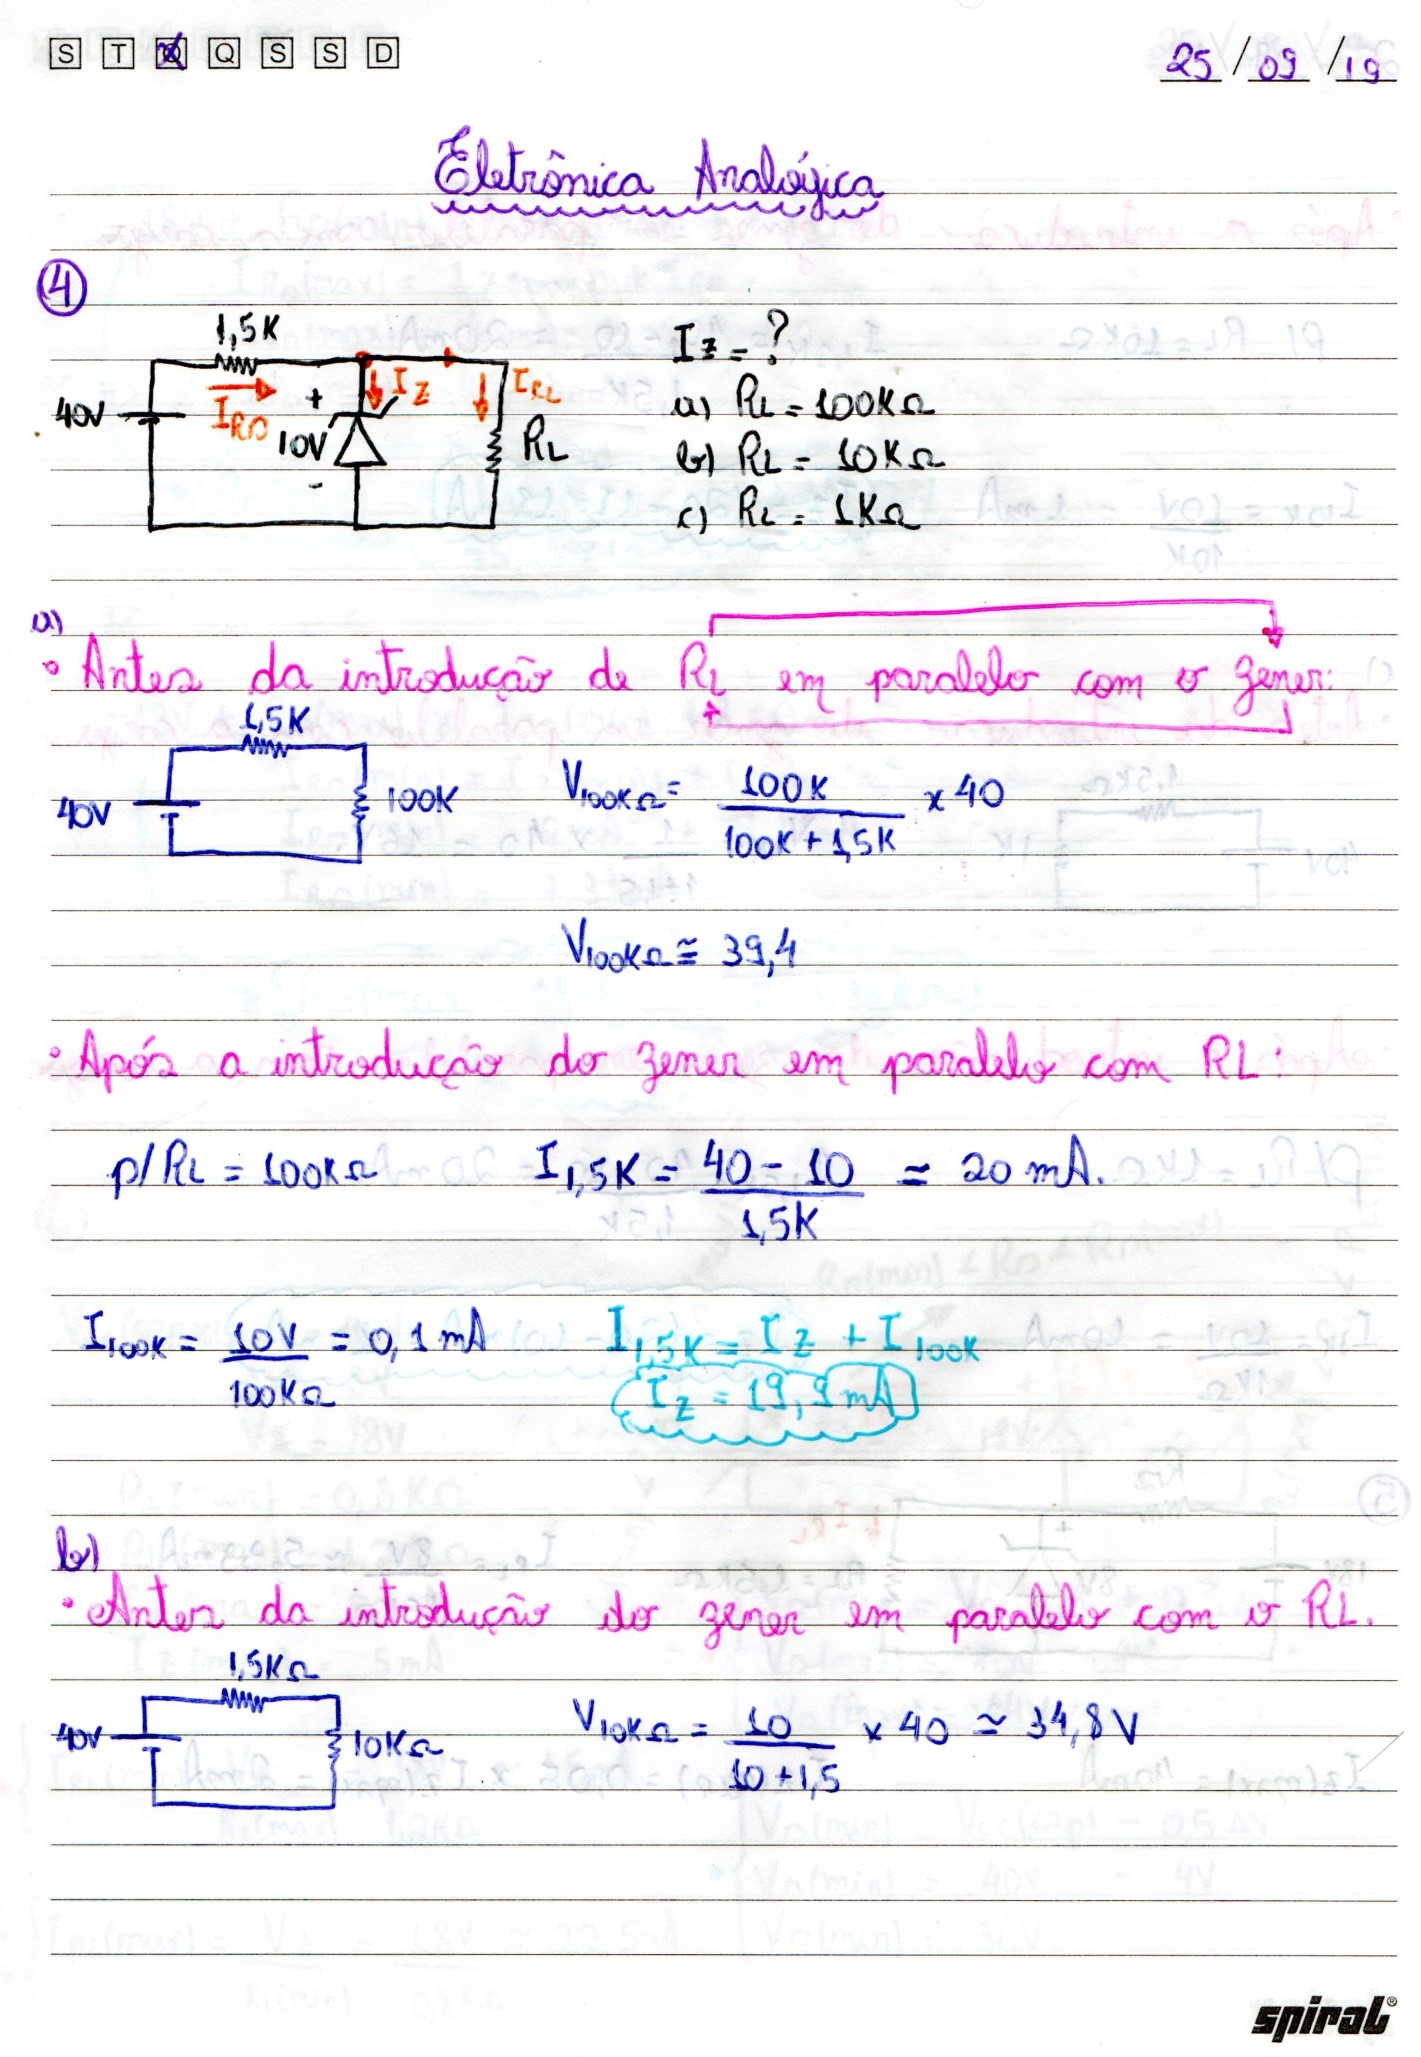 S T Q Q S S D
25/09/19
Eletrônica Analógica
4
1,5K
40V
IRS
+
10V
-
IZ
IRL
RL
Iz = ?
a) RL = 100KΩ
b) RL = 10KΩ
c) RL = 1KΩ
a)
• Antes da introdução de RL em paralelo com o zener:
1,5K
40V
100K
V100KΩ = 100K / 100K + 1,5K x 40
V100KΩ ≅ 39,4
• Após a introdução do zener em paralelo com RL:
p/ RL = 100KΩ I1,5K = 40 - 10 / 1,5K = 20 mA.
I100K = 10V / 100KΩ = 0,1 mA
I1,5K = Iz + I100K
Iz = 19,9 mA
b)
• Antes da introdução do zener em paralelo com o RL.
1,5KΩ
40V
10KΩ
V10KΩ = 10 / 10 + 1,5 x 40 ≅ 34,8 V
spiral®